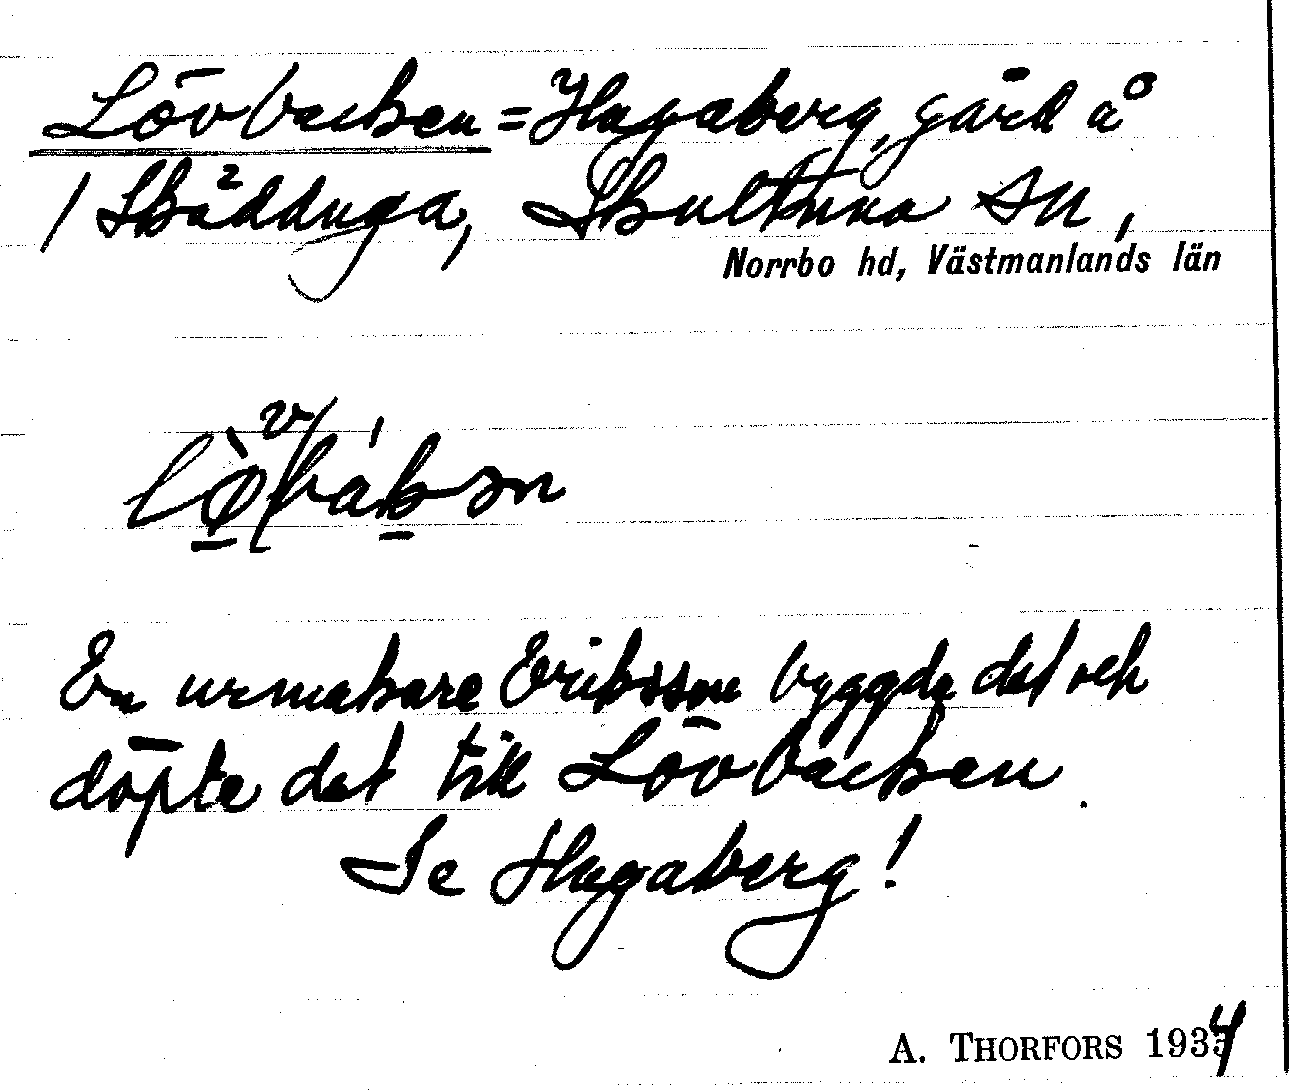 Lövbacken = Hagaberg, gård å
1 Skädduga, Skultuna sn,
Norrbo hd, Västmanlands län
En urmakare Eriksson byggde det och
döpte det till Lövbacken.
Se Hagaberg!
A. THORFORS 1934